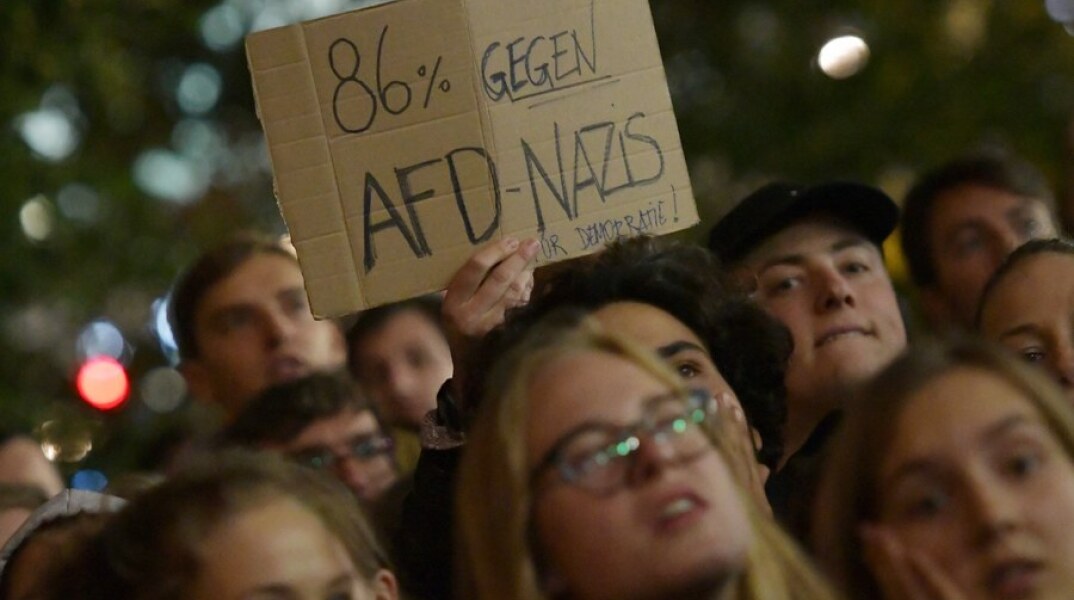 86% GEGEN
AFD-NAZIS
FÜR DEMOKRATIE!